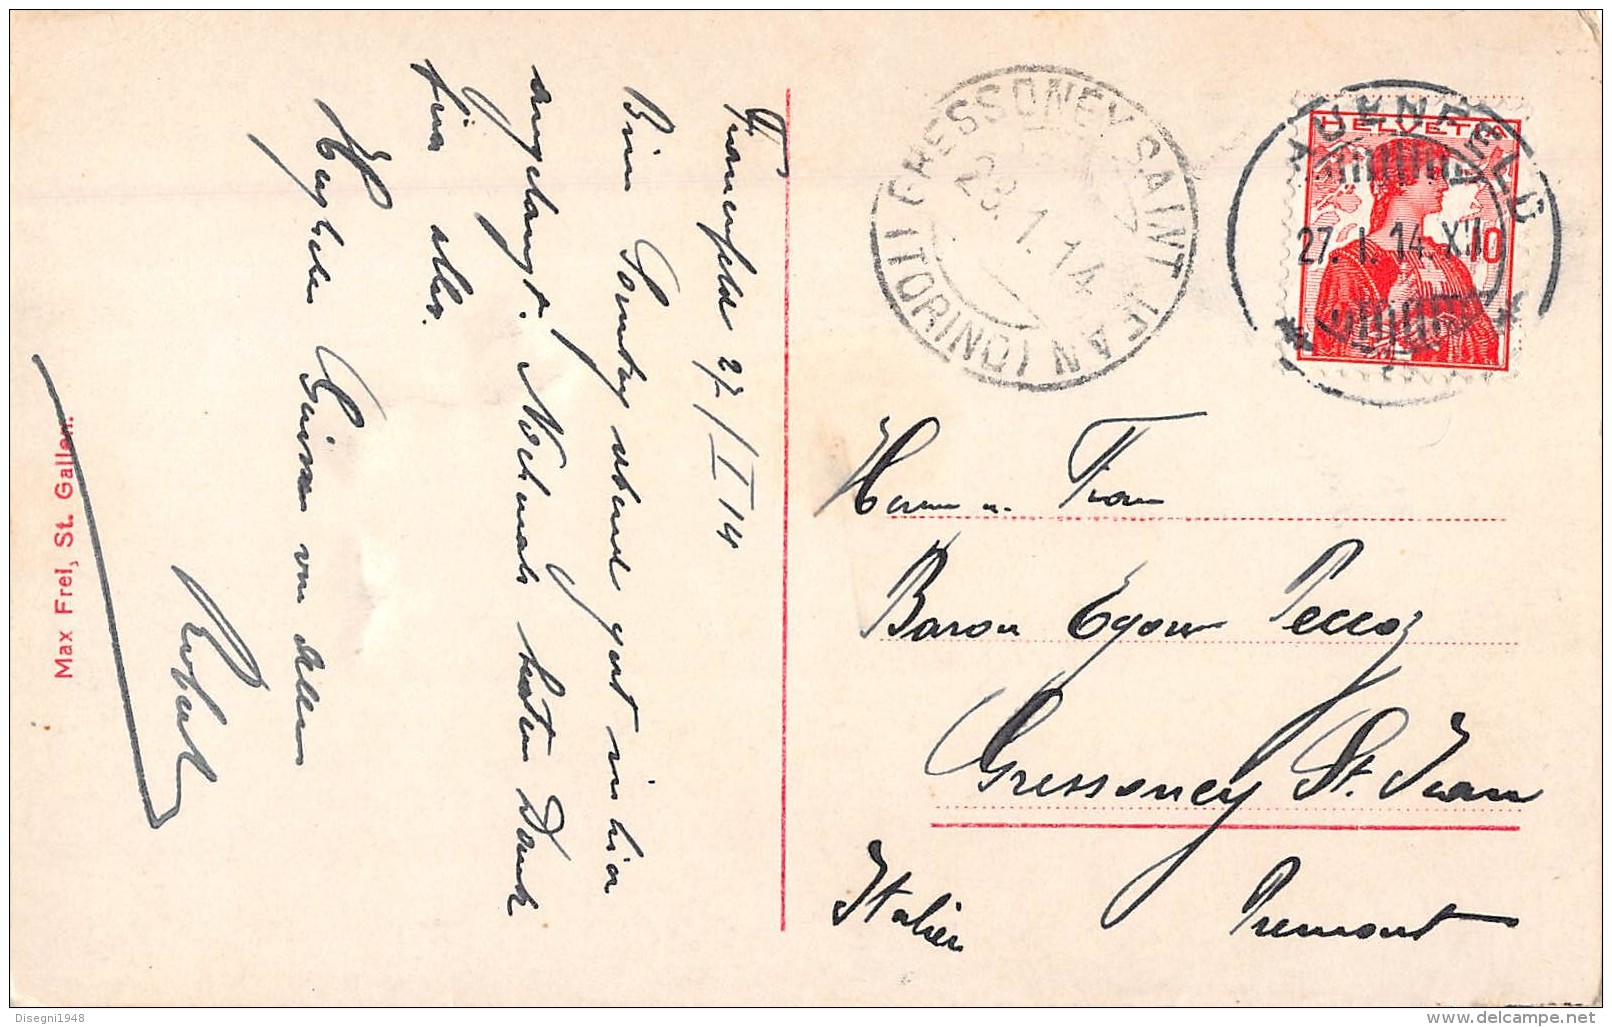 Frauenfeld 27/I 14
Bin Sonntag abend gut in hier
angelangt. Nochmals besten Dank
für alles.
Herzliche Grüsse von Allen
Robert
Max Frei, St. Gallen.
GRESSONEY SAINT JEAN (TORINO)
28.1.14
FRAUENFELD
27.I.14.XII
HELVETIA
10
Herrn u. Frau
Baron Egon Peccoz
Gressoney St. Jean
Italien Piemont
Disegni1948
www.delcampe.net